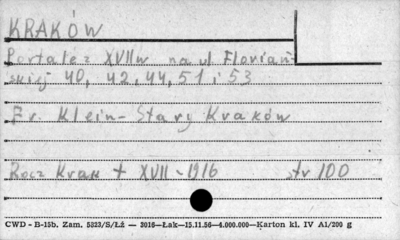 KRAKÓW
Portale z XVII w na ul Floriań-
skiej 40, 42, 44, 51 i 53
Fr. Klein - Stary Kraków
Rocz Krak t XVII - 1916 str 100
CWD - B-15b. Zam. 5823/S/Łż — 3016—Łak—15.11.56—4.000.000—Karton kl. IV A1/200 g